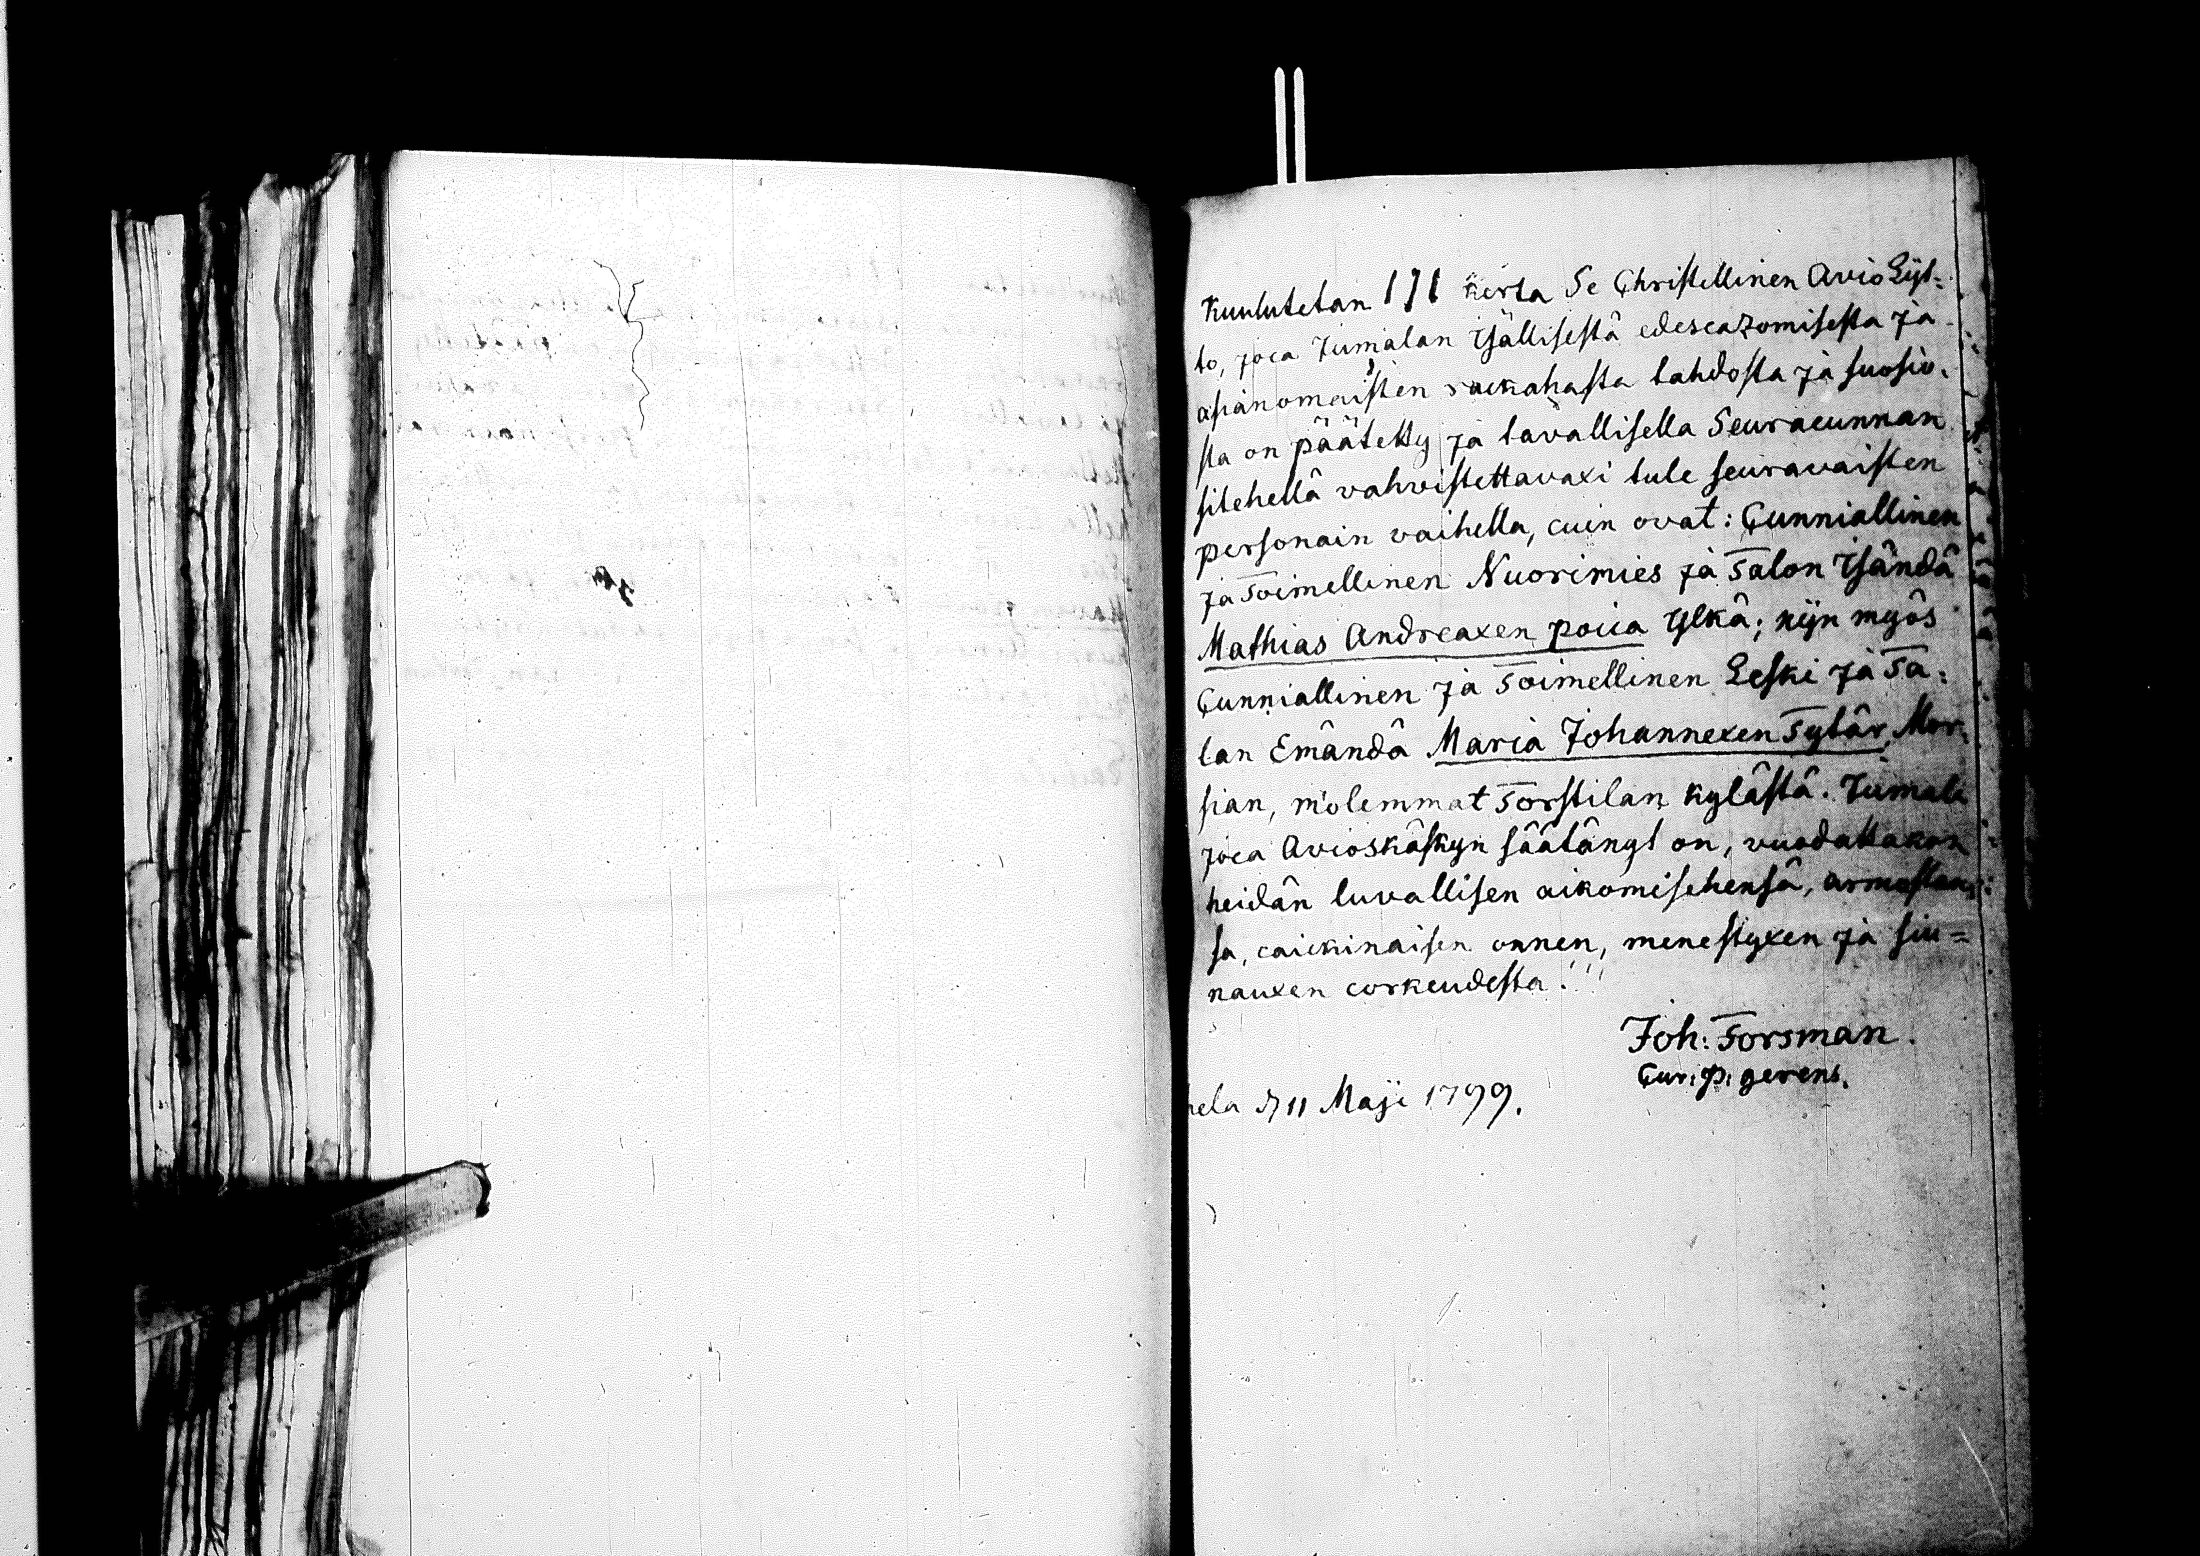 Kuulutetan 171 kerta Se Christellinen Avio Lijt=
to, joca Jumalan Isällisestä edescazomisesta ja
asianomaisten rackahasta tahdosta ja suosiu-
sta on päätetty ja tavallisella Seuracunnan
sitehellä vahvistettavaxi tule seuravaisten
personain vaihella, cuin ovat: Cunniallinen
ja Toimellinen Nuorimies ja Talon Isändä
Mathias Andreaxen poica Ylkä; nijn myös
Cunniallinen ja Toimellinen Leski ja Ta:
lan Emändä Maria Johannexen Tytär, Mor-
sian, molemmat Torstilan kylästä. Jumala
joca Avioskäskyn säätänyt on, vuodattakon
heidän luvallisen aikomisehensä, armostan-
sa, caickinaisen onnen, menestyxen ja siu=
nauxen corkeudesta!!!
Joh: Forsman.
Cur: p: gerens.
hela d 11 Maji 1799.